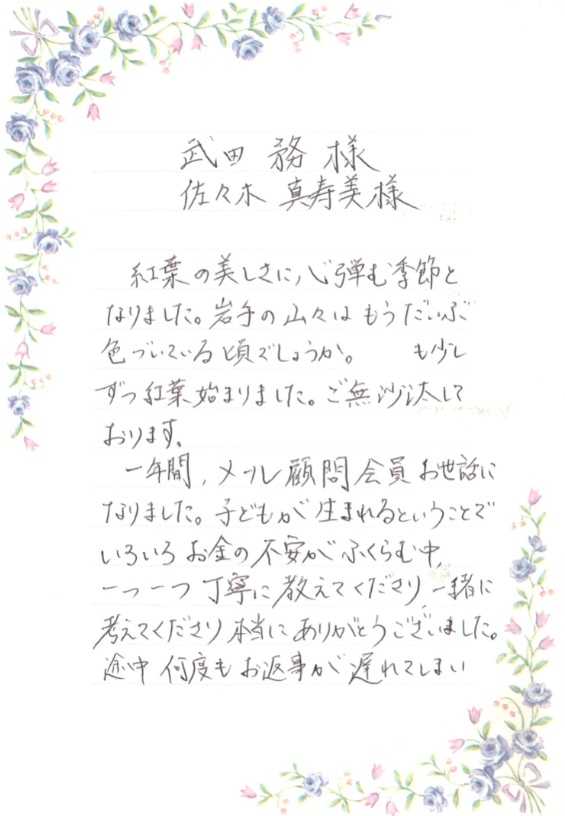 武田 務 様
佐々木 真寿美 様
紅葉の美しさに心弾む季節と
なりました。岩手の山々はもうだいぶ
色づいている頃でしょうか。 も少し
ずつ紅葉始まりました。ご無沙汰して
おります。
一年間、メール顧問会員お世話に
なりました。子どもが生まれるということで
いろいろお金の不安がふくらむ中、
一つ一つ丁寧に教えてくださり、一緒に
考えてくださり本当にありがとうございました。
途中何度もお返事が遅れてしまい